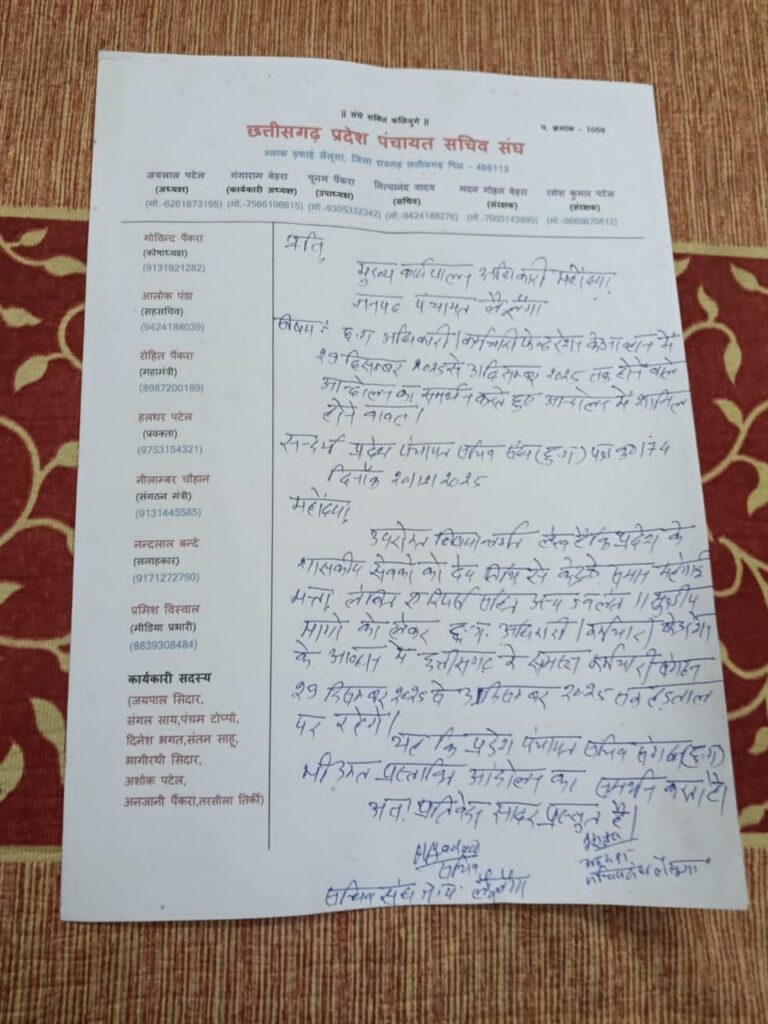 ॥ संघे शक्ति कलियुगे ॥
प. क्रमांक - 1059
छत्तीसगढ़ प्रदेश पंचायत सचिव संघ
ब्लाक इकाई लैलूंगा, जिला रायगढ़ छत्तीसगढ़ पिन - 496113
जयलाल पटेल गंगाराम बेहरा पूनम पैंकरा नित्यानंद यादव मदन मोहन बेहरा रमेश कुमार पटेल
(अध्यक्ष) (कार्यकारी अध्यक्ष) (उपाध्यक्ष) (सचिव) (संरक्षक) (संरक्षक)
(मो.-6261673195) (मो.-7566106615) (मो.-9305332342) (मो.-9424188276) (मो.-7000143995) (मो.-9669670812)
गोविन्द पैंकरा
(कोषाध्यक्ष)
(9131921282)
आलोक पंडा
(सहसचिव)
(9424188039)
रोहित पैंकरा
(महामंत्री)
(8987200189)
हलधर पटेल
(प्रवक्ता)
(9753154321)
नीलाम्बर चौहान
(संगठन मंत्री)
(9131445585)
नन्दलाल बन्दे
(सलाहकार)
(9171272790)
प्रमिश विस्वाल
(मीडिया प्रभारी)
(8839308484)
कार्यकारी सदस्य
(जयपाल सिदार,
संगल साय,पंचम टोप्पो,
दिनेश भगत,संतन साहू,
भागीरथी सिदार,
अशोक पटेल,
अनजानी पैंकरा,तरसीला तिर्की)
प्रति,
मुख्य कार्यपालन अधिकारी महोदया,
जनपद पंचायत लैलूंगा
विषय:- छ.ग अधिकारी/कर्मचारी फेडरेशन के आव्हान में
29 दिसम्बर 2025 से 31 दिसम्बर 2025 तक होने वाले
आन्दोलन का समर्थन करते हुए आन्दोलन में शामिल
होने बाबत।
सन्दर्भ प्रदेश पंचायत सचिव संघ (छ.ग) पत्र क्र0 174
दिनाँक 20/12/2025
महोदया,
उपरोक्त विषयान्तर्गत लेख है कि प्रदेश के
शासकीय सेवकों को देय तिथि से केन्द्र के समान महंगाई
भत्ता, लंबित एरियर्स सहित अन्य ज्वलंत 11 सूत्रीय
मांगो को लेकर छ.ग. अधिकारी/कर्मचारी फेडरेशन
के आव्हान में छत्तीसगढ़ के समस्त कर्मचारी संगठन
29 दिसम्बर 2025 से 31 दिसम्बर 2025 तक हड़ताल
पर रहेंगे।
यह कि प्रदेश पंचायत सचिव संगठन (छ.ग)
भी उक्त प्रस्तावित आंदोलन का समर्थन करता है।
अतः प्रतिवेदन सादर प्रस्तुत है।
सचिव
सचिव संघ ज.पं. लैलूंगा
अध्यक्ष
सचिव संघ लैलूंगा